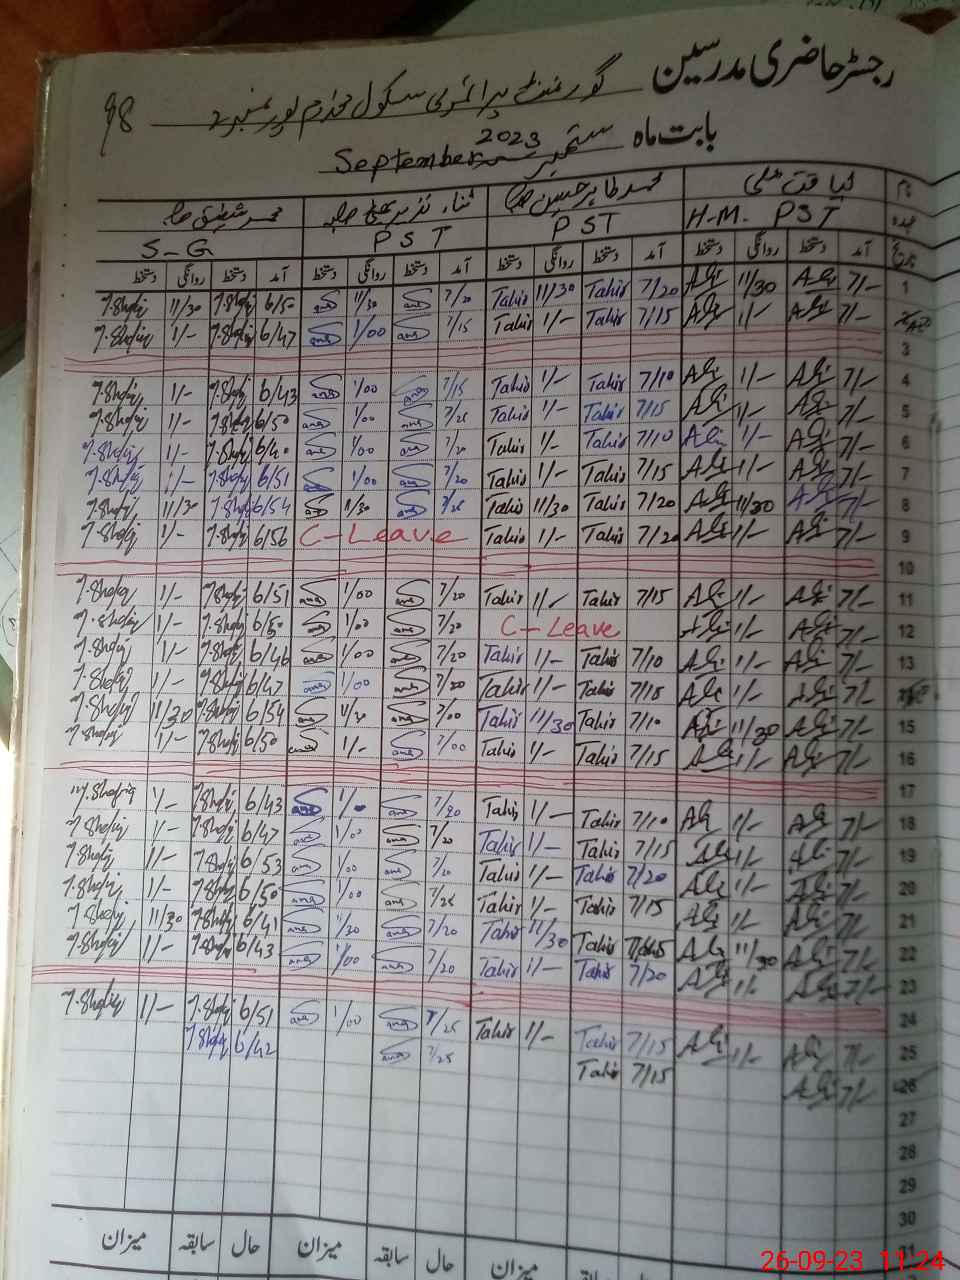 رجسٹر حاضری مدرسین گورنمنٹ پرائمری سکول مخدوم پور نمبر 2 98
بابت ماہ ستمبر 2023 September
نام لیاقت علی محمد طاہر حسین صاحب ثناء نذیر بھٹی صاحبہ محمد شفیق صاحب
عہدہ H-M. PST PST PST S-G
تاریخ آمد دستخط روانگی دستخط آمد دستخط روانگی دستخط آمد دستخط روانگی دستخط آمد دستخط روانگی دستخط
1 7/- Ali 11/30 Ali 7/20 Tahir 11/30 Tahir 7/20 11/30 6/50 M.Shafiq 11/30 M.Shafiq
7/- Ali 1/- Ali 7/15 Tahir 1/- Tahir 7/15 1/00 6/47 M.Shafiq 1/- M.Shafiq
3
4 7/- Ali 1/- Ali 7/10 Tahir 1/- Tahir 7/15 1/00 6/43 M.Shafiq 1/- M.Shafiq
5 7/- Ali 1/- Ali 7/15 Tahir 1/- Tahir 7/25 1/00 6/50 M.Shafiq 1/- M.Shafiq
6 7/- Ali 1/- Ali 7/10 Tahir 1/- Tahir 7/20 1/00 6/40 M.Shafiq 1/- M.Shafiq
7 7/- Ali 1/- Ali 7/15 Tahir 1/- Tahir 7/20 1/00 6/51 M.Shafiq 1/- M.Shafiq
8 7/- Ali 11/30 Ali 7/20 Tahir 11/30 Tahir 7/25 11/30 6/54 M.Shafiq 11/30 M.Shafiq
9 7/- Ali 1/- Ali 7/20 Tahir 1/- Tahir C-Leave 6/56 M.Shafiq 1/- M.Shafiq
10
11 7/- Ali 1/- Ali 7/15 Tahir 1/- Tahir 7/20 1/00 6/51 M.Shafiq 1/- M.Shafiq
12 7/- Ali 1/- Ali C-Leave 7/20 1/00 6/50 M.Shafiq 1/- M.Shafiq
13 7/- Ali 1/- Ali 7/10 Tahir 1/- Tahir 7/20 1/00 6/46 M.Shafiq 1/- M.Shafiq
7/- Ali 1/- Ali 7/15 Tahir 1/- Tahir 7/20 1/00 6/47 M.Shafiq 1/- M.Shafiq
15 7/- Ali 11/30 Ali 7/10 Tahir 11/30 Tahir 7/00 11/30 6/54 M.Shafiq 11/30 M.Shafiq
16 7/- Ali 1/- Ali 7/15 Tahir 1/- Tahir 7/00 1/- 6/50 M.Shafiq 1/- M.Shafiq
17
18 7/- Ali 1/- Ali 7/10 Tahir 1/- Tahir 7/20 6/43 M.Shafiq 1/- M.Shafiq
19 7/- Ali 1/- Ali 7/15 Tahir 1/- Tahir 7/20 1/00 6/47 M.Shafiq 1/- M.Shafiq
20 7/- Ali 1/- Ali 7/20 Tahir 1/- Tahir 7/20 1/00 6/53 M.Shafiq 1/- M.Shafiq
21 7/- Ali 1/- Ali 7/15 Tahir 1/- Tahir 7/25 1/00 6/50 M.Shafiq 1/- M.Shafiq
22 7/- Ali 11/30 Ali Tahir 11/30 Tahir 7/20 11/30 6/41 M.Shafiq 11/30 M.Shafiq
23 7/- Ali 1/- Ali 7/20 Tahir 1/- Tahir 7/20 1/00 6/43 M.Shafiq 1/- M.Shafiq
24
25 7/- Ali 1/- Ali 7/15 Tahir 1/- Tahir 7/25 1/00 6/51 M.Shafiq 1/- M.Shafiq
26 7/- Ali 7/15 Tahir 7/25 6/42 M.Shafiq
27
28
29
30
31
میزان حال سابقہ میزان حال سابقہ میزان
26-09-23 11:24